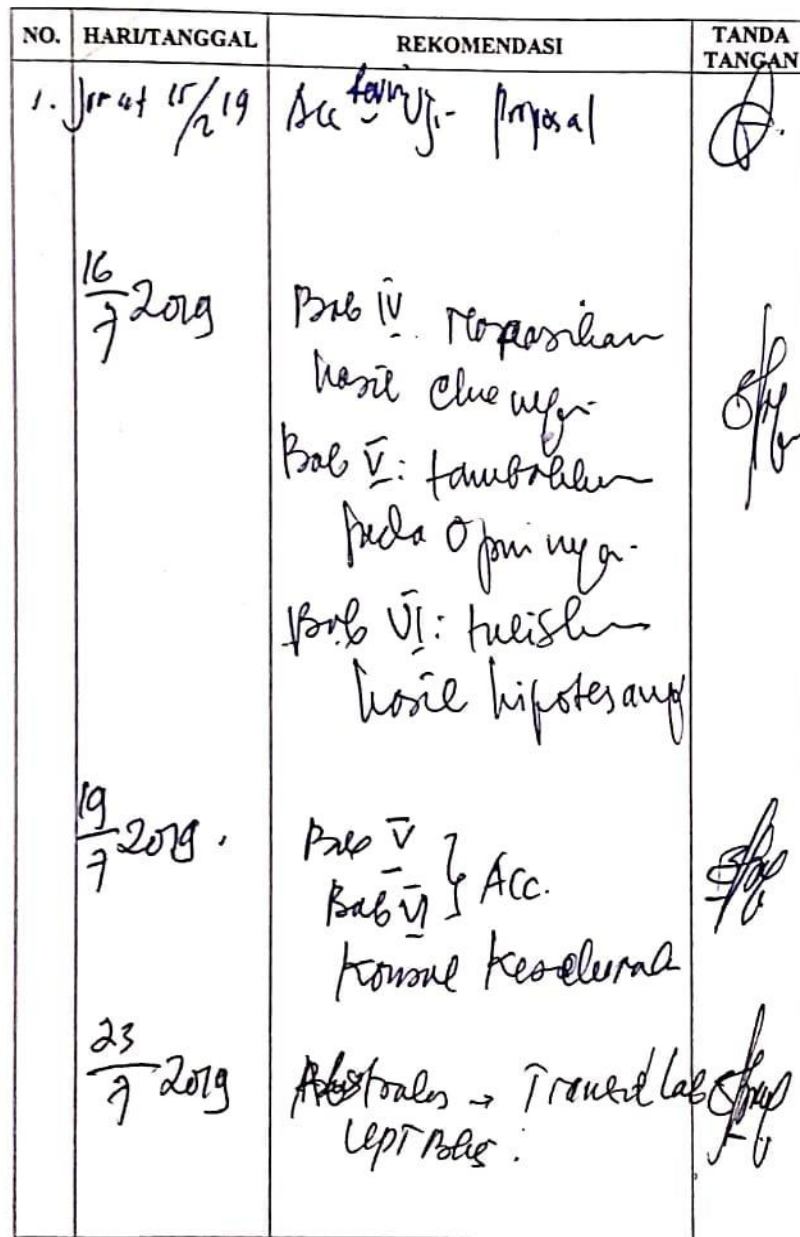 NO. HARI/TANGGAL REKOMENDASI TANDA TANGAN
1. Jum'at 15/2 19 Acc Uji Proposal
16/7 2019 Bab IV
hasil
Bab V: tambahkan
pada Opininya.
Bab VI: tuliskan
hasil hipotesanya
19/7 2019. Bab V } Acc.
Bab VI
Konsul Keseluruhan
23/7 2019 Abstrak → Translet Lab
UPT Bhs.